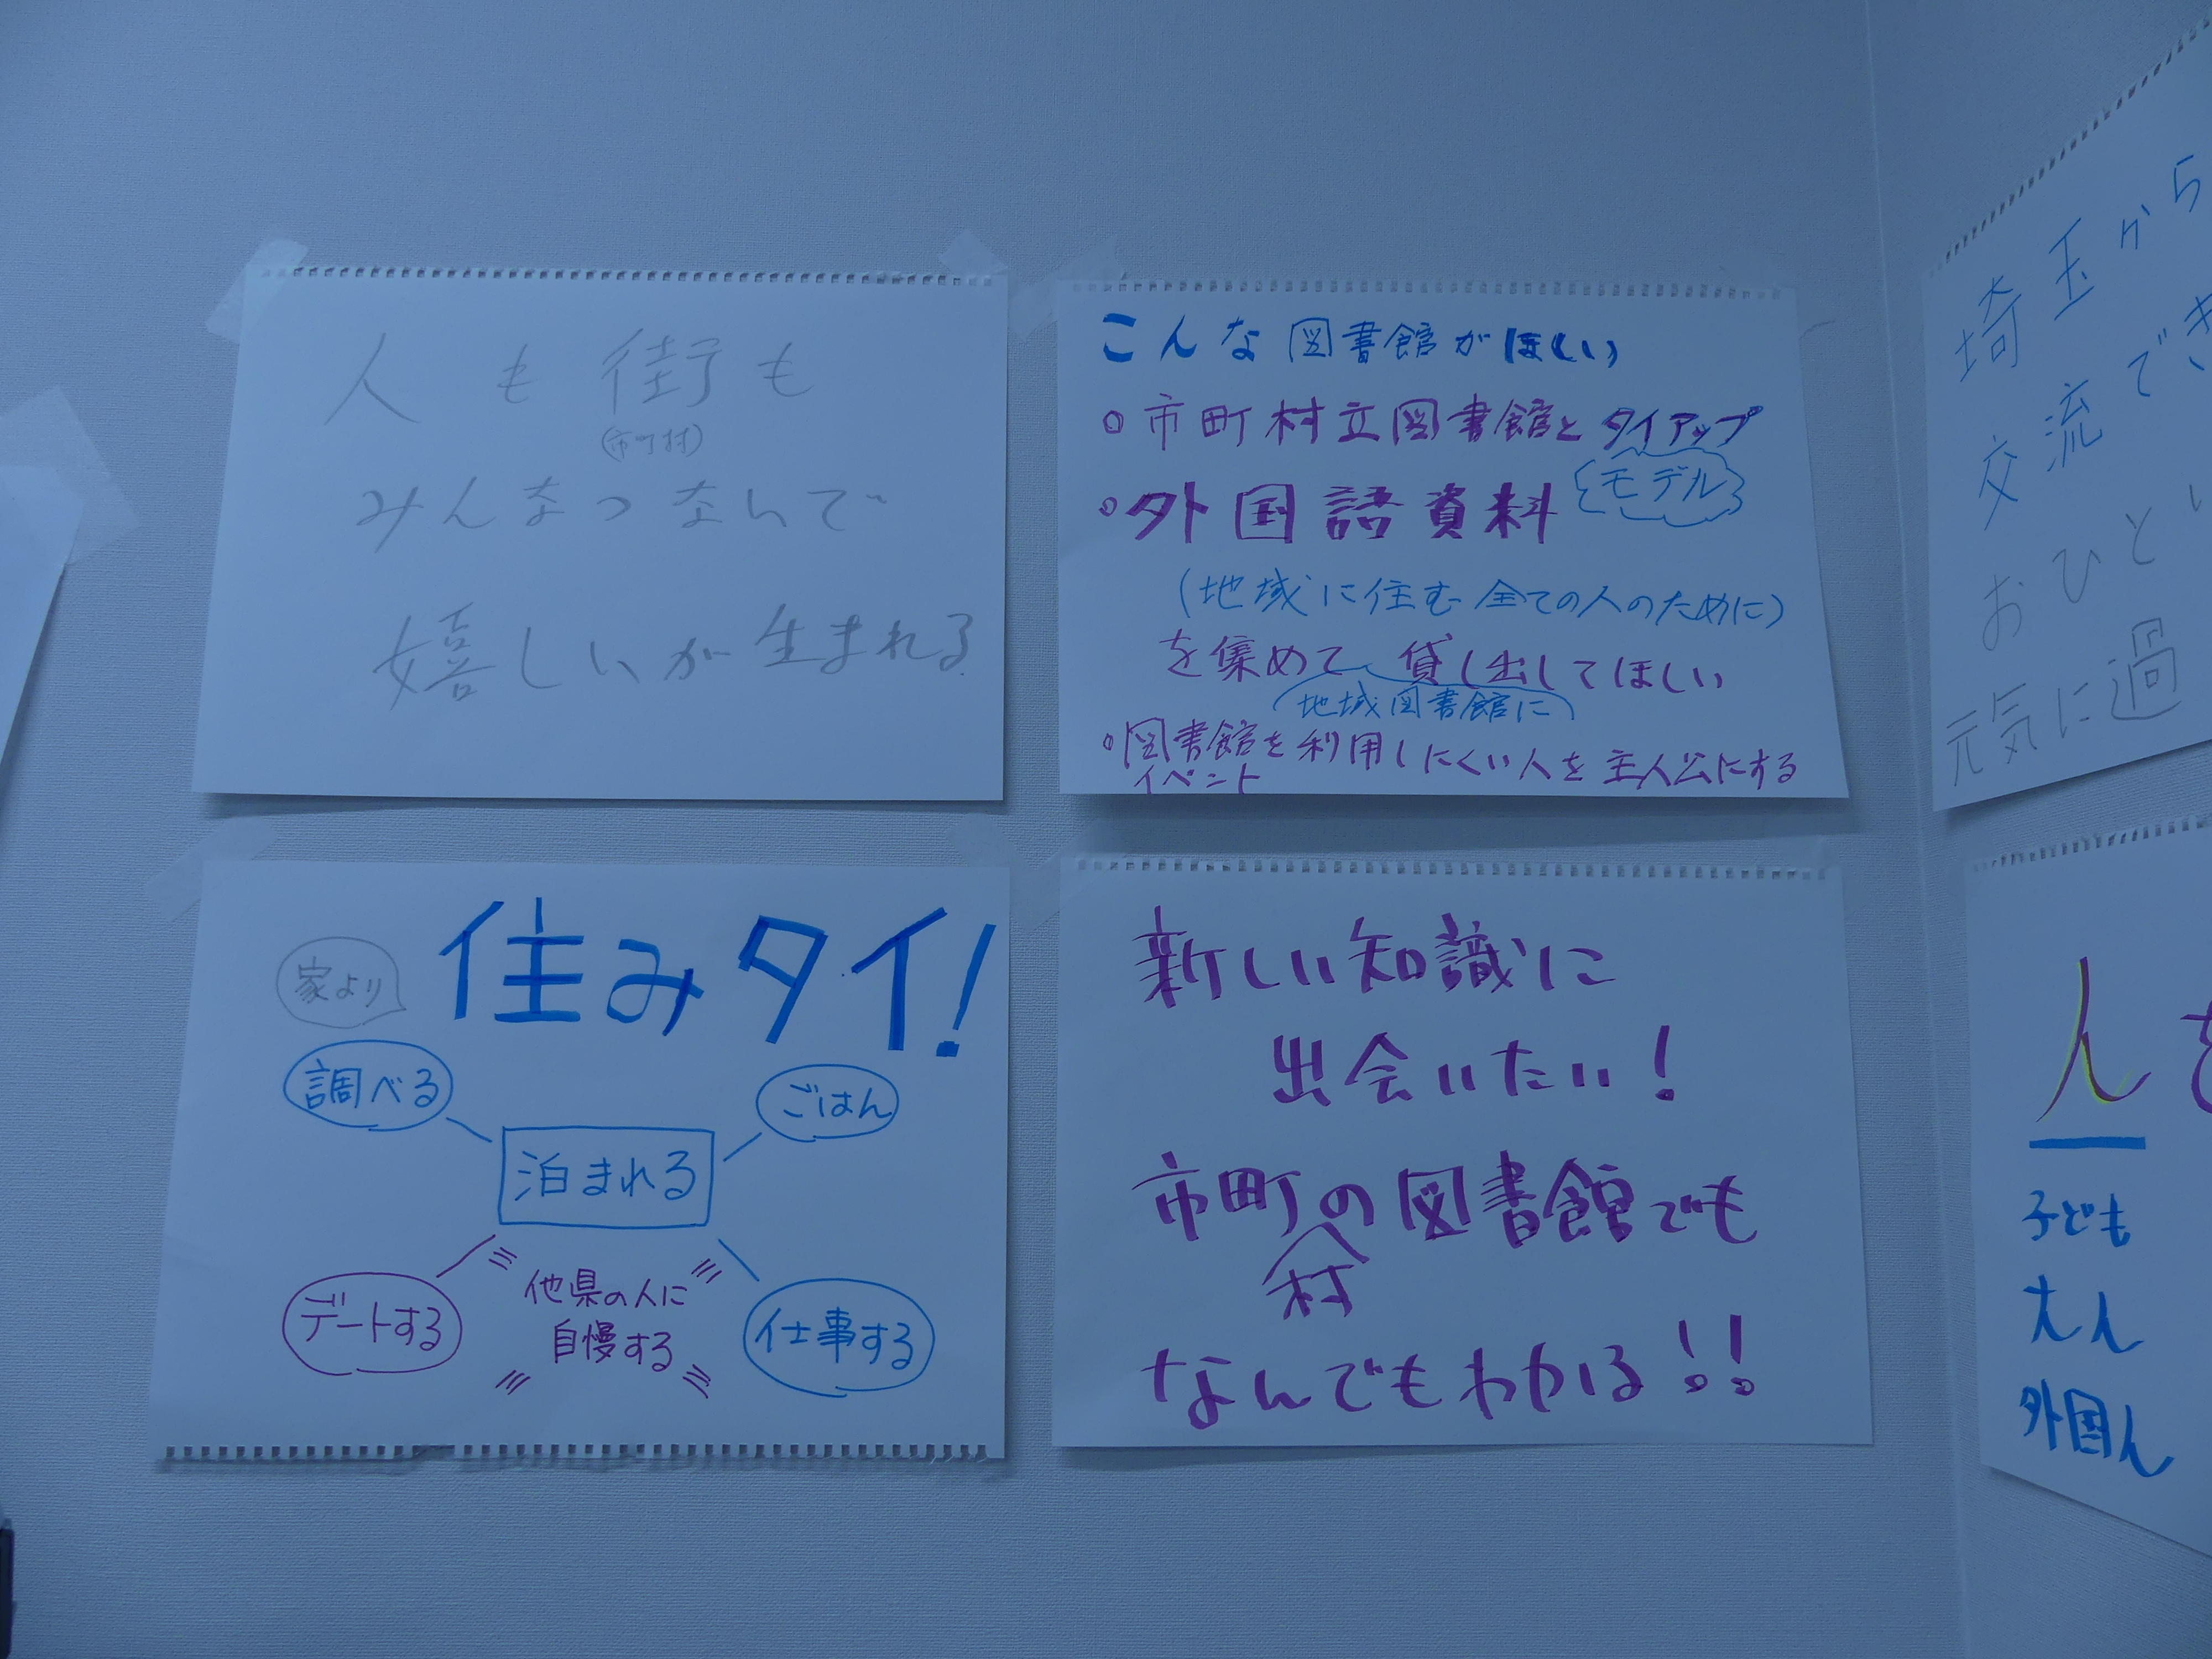 人も街も
(市町村)
みんなつないで
嬉しいが生まれる
こんな図書館がほしい
○市町村立図書館とタイアップ
○外国語資料 モデル
(地域に住む全ての人のために)
を集めて貸し出してほしい
地域図書館に
○図書館を利用しにくい人を主人公にする
イベント
家より
住みタイ!
調べる
ごはん
泊まれる
デートする
他県の人に
自慢する
仕事する
新しい知識に
出会いたい!
市町の図書館でも
村
なんでもわかる!!
埼玉から
交流でき
おひと
元気に過
人を
子ども
大人
外国人